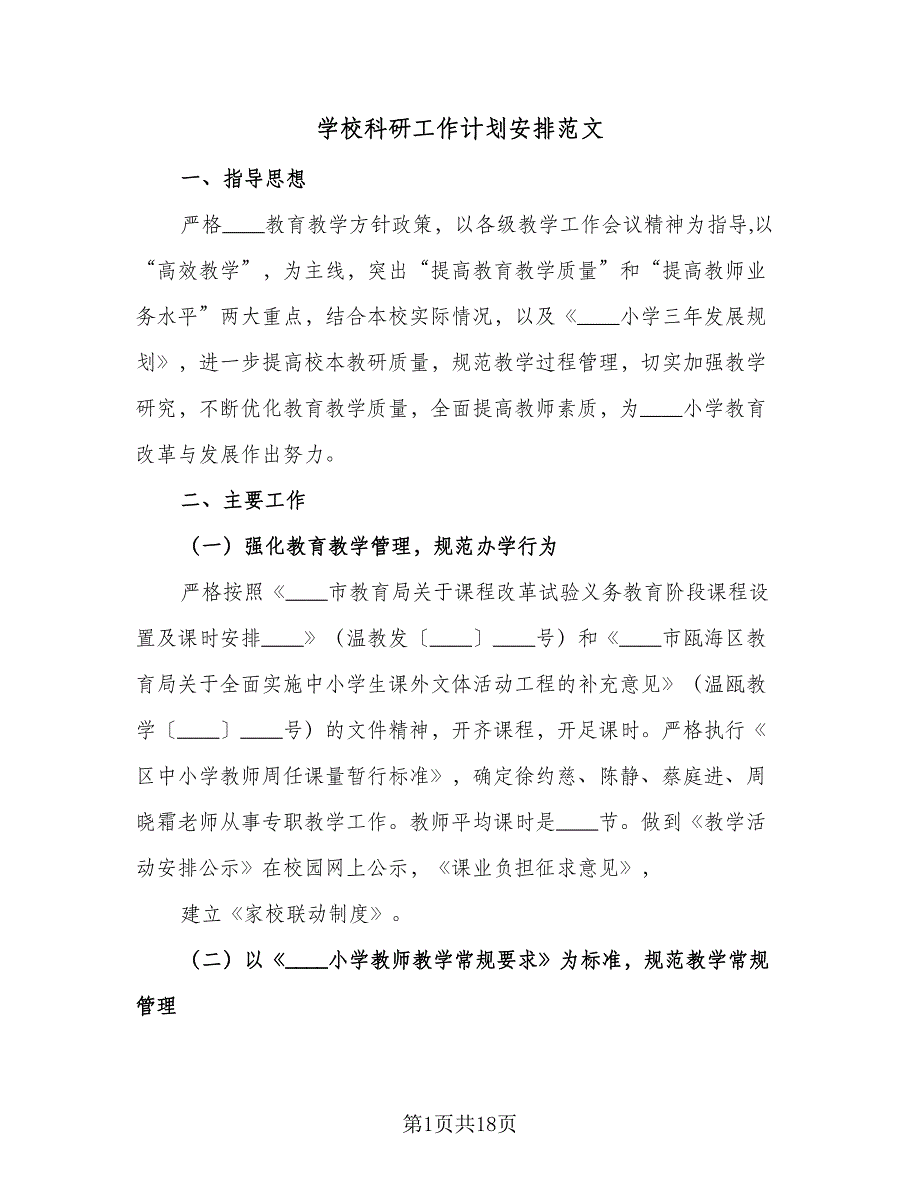 学校科研工作计划安排范文
一、指导思想
严格____教育教学方针政策，以各级教学工作会议精神为指导,以
“高效教学”，为主线，突出“提高教育教学质量”和“提高教师业
务水平”两大重点，结合本校实际情况，以及《____小学三年发展规
划》，进一步提高校本教研质量，规范教学过程管理，切实加强教学
研究，不断优化教育教学质量，全面提高教师素质，为____小学教育
改革与发展作出努力。
二、主要工作
（一）强化教育教学管理，规范办学行为
严格按照《____市教育局关于课程改革试验义务教育阶段课程设
置及课时安排____》（温教发〔____〕____号）和《____市瓯海区教
育局关于全面实施中小学生课外文体活动工程的补充意见》（温瓯教
学〔____〕____号）的文件精神，开齐课程，开足课时。严格执行《
区中小学教师周任课量暂行标准》，确定徐约慈、陈静、蔡庭进、周
晓霜老师从事专职教学工作。教师平均课时是____节。做到《教学活
动安排公示》在校园网上公示，《课业负担征求意见》，
建立《家校联动制度》。
（二）以《____小学教师教学常规要求》为标准，规范教学常规
管理
第1页共18页